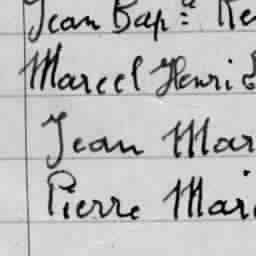 Jean Bapt
Marcel Henri
Jean Mar
Pierre Mari